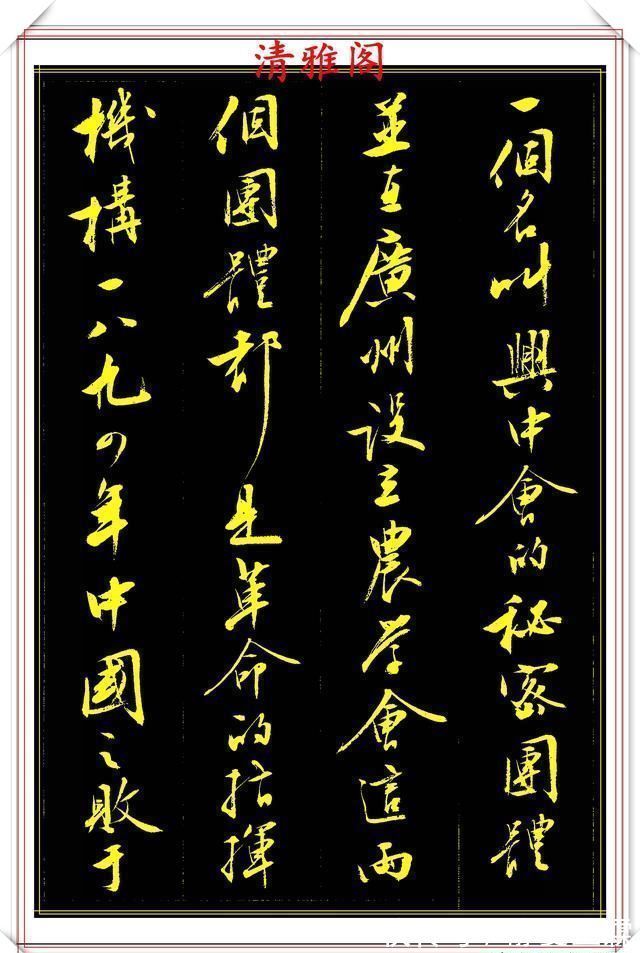 清雅阁
一個名叫興中會的秘密團體
並在廣州设立農学會這兩
個團體都是革命的指揮
機構一八九四年中國之敗于